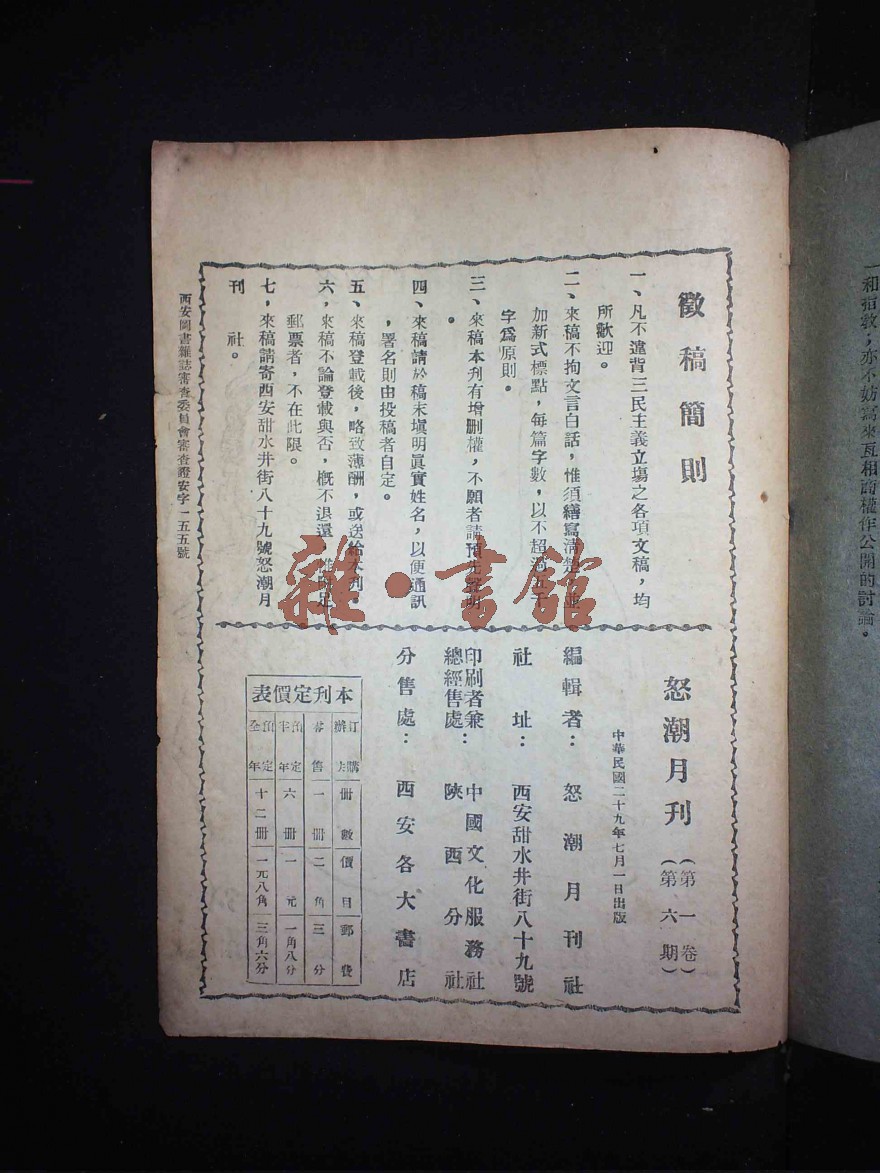 徵稿簡則
一、凡不違背三民主義立塲之各項文稿，均
所歡迎。
二、來稿不拘文言白話，惟須繕寫清楚，並
加新式標點，每篇字數，以不超過五千
字爲原則。
三、來稿本刋有增删權，不願者請預先聲明
。
四、來稿請於稿末塡明眞實姓名，以便通訊
，署名則由投稿者自定。
五、來稿登載後，略致薄酬，或送給本刋。
六，來稿不論登載與否，槪不退還 惟附足
郵票者，不在此限。
七，來稿請寄西安甜水井街八十九號怒潮月
刊社。
怒潮月刋（第一卷）（第六期）
中華民國二十九年七月一日出版
編輯者：怒潮月刊社
社址：西安甜水井街八十九號
印刷者兼
總經售處：中國文化服務社
陝西分社
分售處：西安各大書店
本刋定價表
訂購辦法 冊數 價目 郵費
零售 一冊 二角 三分
預定半年 六冊 一元 一角八分
預定全年 十二冊 一元八角 三角六分
西安圖書雜誌審查委員會審查證安字一五五號
雜·書館
一和指教，亦不妨寫來互相商權作公開的討論。